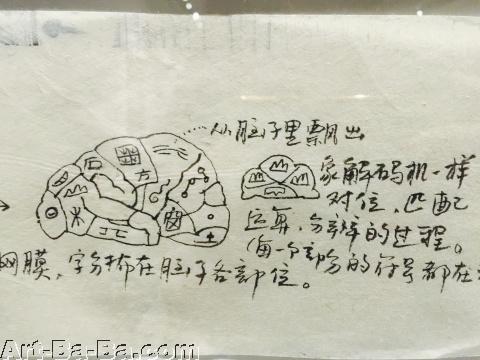 从脑子里飘出
象解码机一样
对位，匹配
运算，分辨的过程。
网膜，字分布在脑子各部位。
(每一个部分的符号都在
Art-Ba-Ba.com
Art-Ba-Ba.com